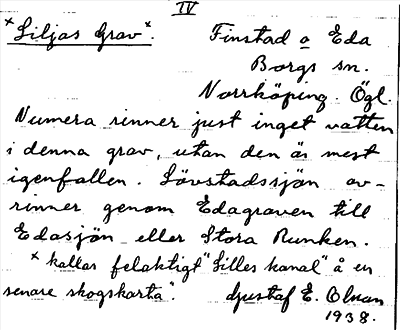 IV
x Liljas Grav x. Finstad o Eda
Borgs sn.
Norrköping Ögl.
Numera rinner just inget vatten
i denna grav, utan den är mest
igenfallen. Lövstadssjön av-
rinner genom Edagraven till
Edasjön eller Stora Runken.
x kallas felaktigt "Lilles kanal" å en
senare skogskarta". Gustaf E. Olsson
1938.